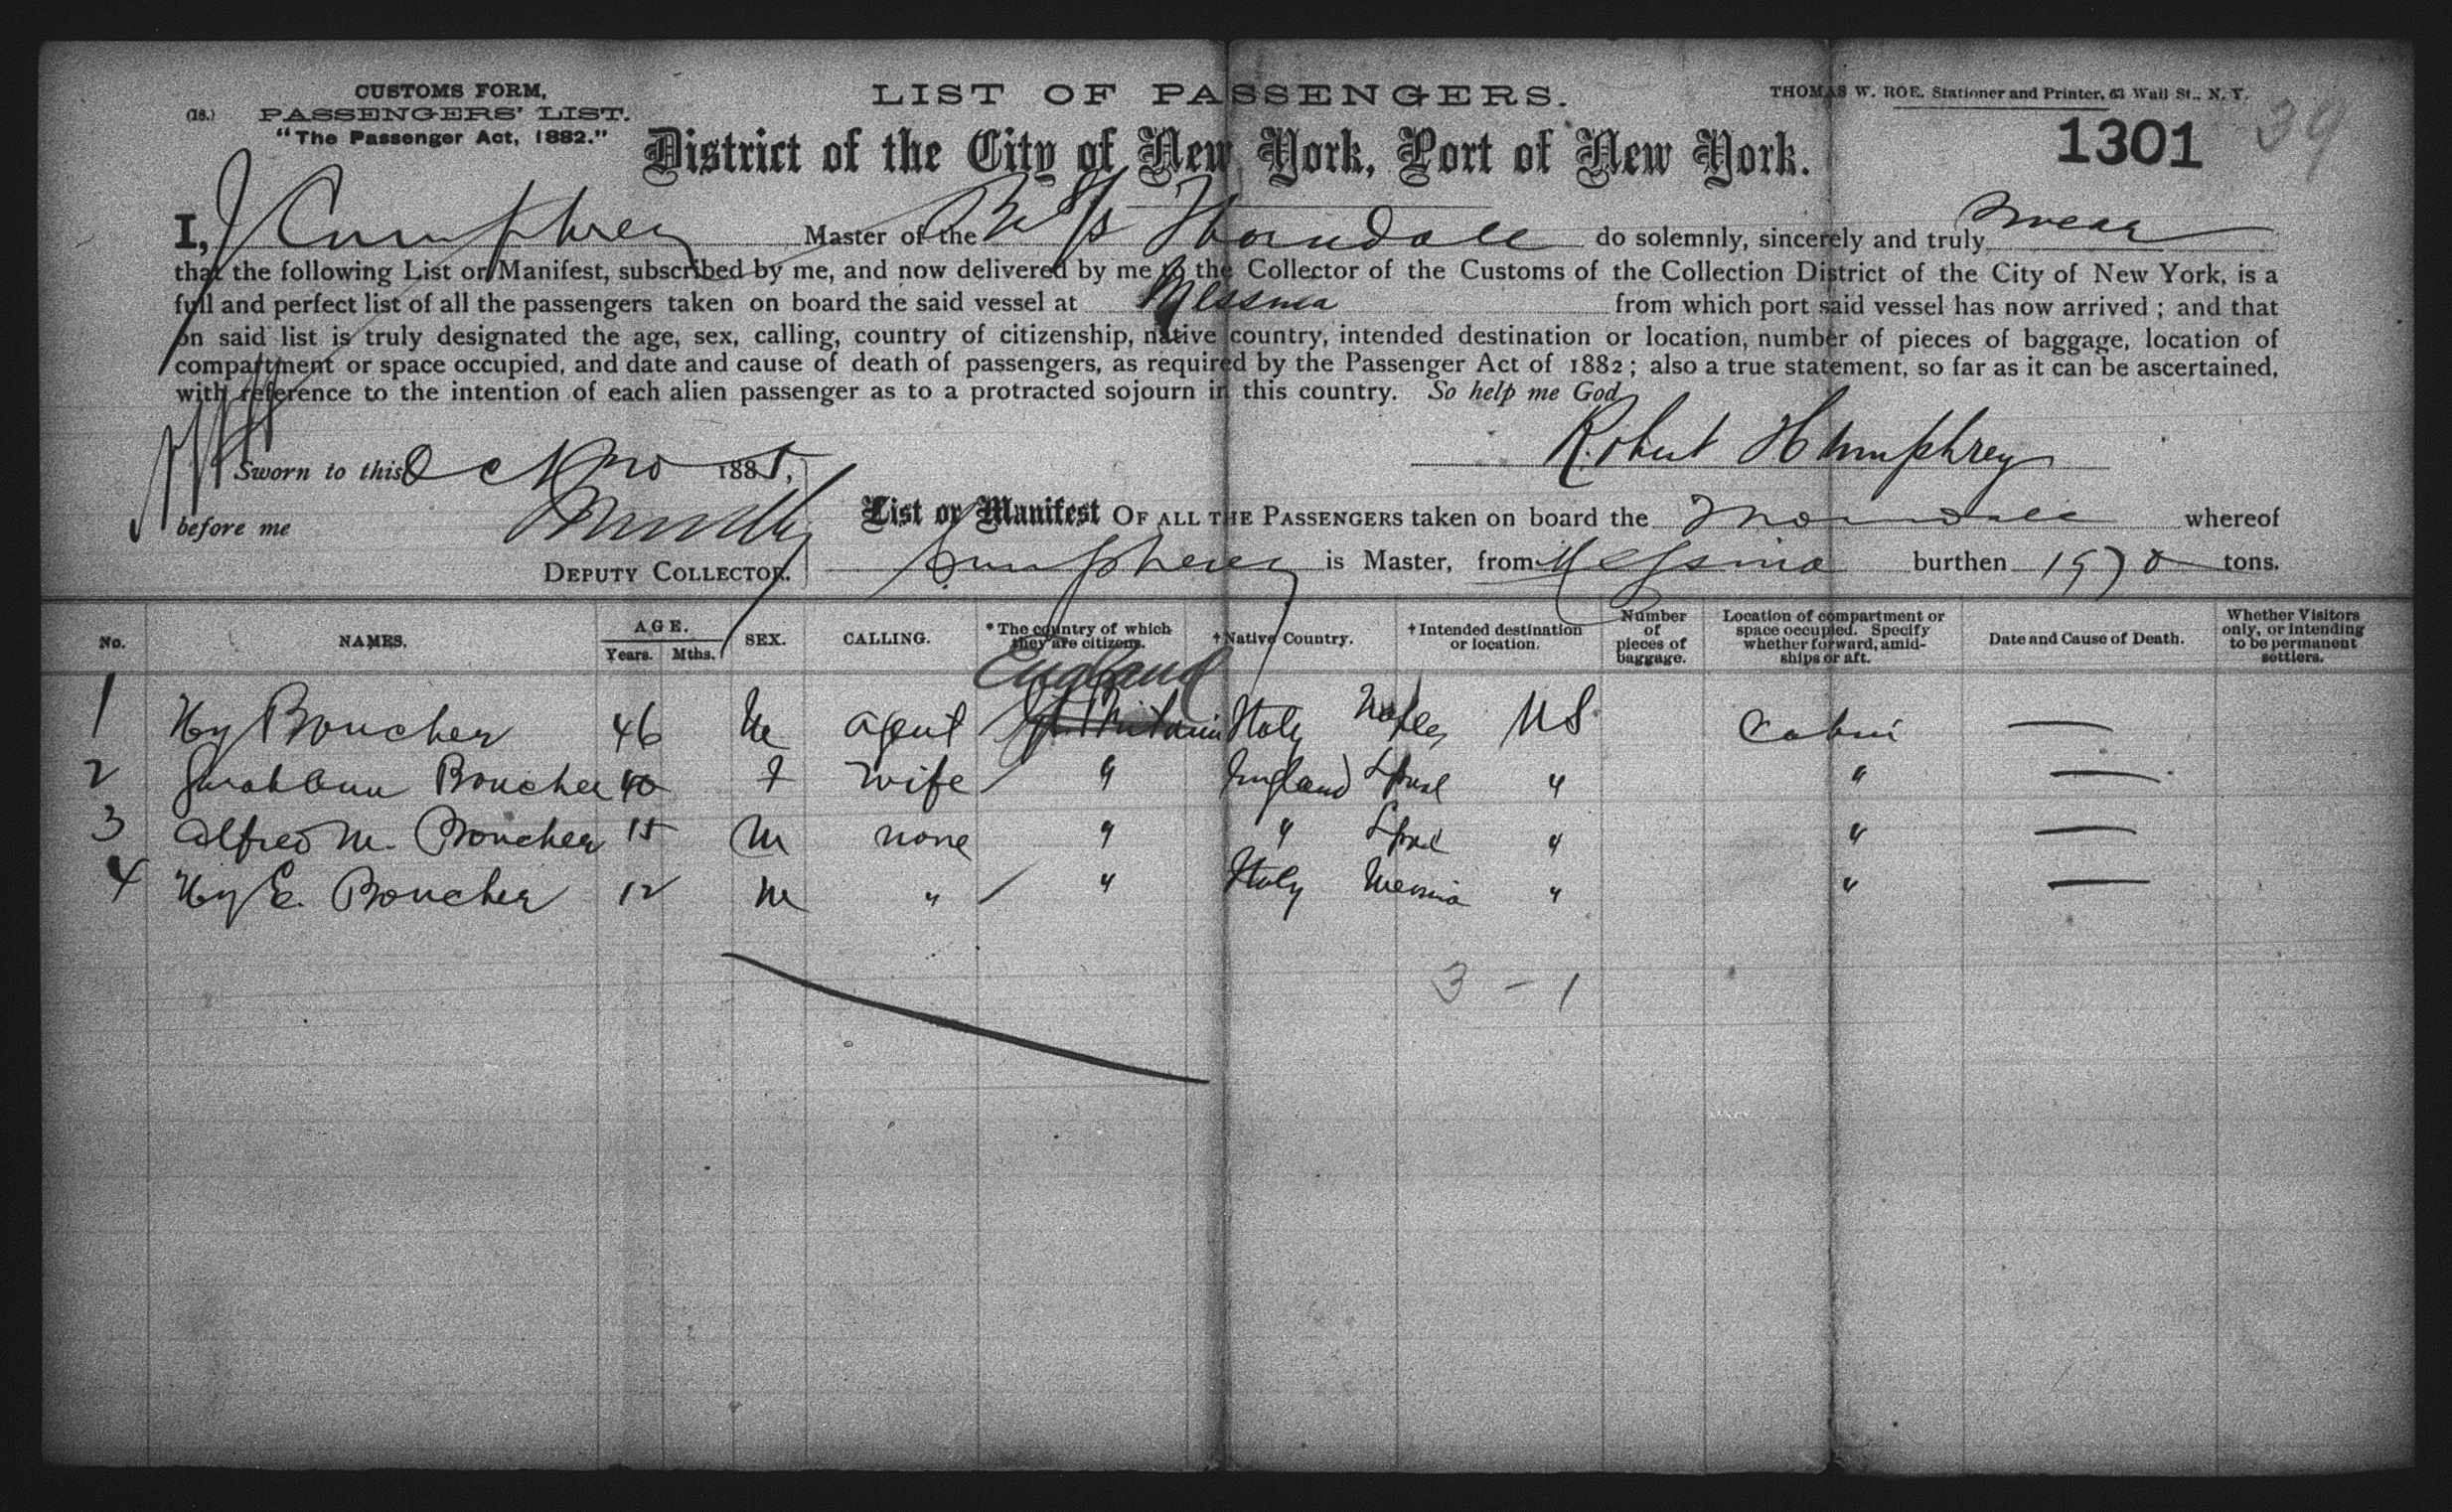 CUSTOMS FORM,
(18.) PASSENGERS' LIST.
"The Passenger Act, 1882."
LIST OF PASSENGERS.
THOMAS W. ROE, Stationer and Printer, 63 Wall St., N. Y.
1301 39
District of the City of New York, Port of New York.
I, Humphrey Master of the Br S/S Thorndale do solemnly, sincerely and truly swear
that the following List or Manifest, subscribed by me, and now delivered by me to the Collector of the Customs of the Collection District of the City of New York, is a
full and perfect list of all the passengers taken on board the said vessel at Messina from which port said vessel has now arrived ; and that
on said list is truly designated the age, sex, calling, country of citizenship, native country, intended destination or location, number of pieces of baggage, location of
compartment or space occupied, and date and cause of death of passengers, as required by the Passenger Act of 1882 ; also a true statement, so far as it can be ascertained,
with reference to the intention of each alien passenger as to a protracted sojourn in this country. So help me God.
Robert Humphrey
Sworn to this Oct 188
before me
DEPUTY COLLECTOR.
List or Manifest OF ALL THE PASSENGERS taken on board the Thorndale whereof
Humphrey is Master, from Messina burthen 1970 tons.
No. NAMES. AGE. Years. Mths. SEX. CALLING. *The country of which they are citizens. †Native Country. †Intended destination or location. Number of pieces of baggage. Location of compartment or space occupied. Specify whether forward, amidships or aft. Date and Cause of Death. Whether Visitors only, or intending to be permanent settlers.
England
1 Hy Boucher 46 M agent Gt Britain Italy Naples US Cabin —
2 Sarah Ann Boucher 40 F wife " England Lpool " " —
3 Alfred M. Boucher 15 M none " " Lpool " " —
4 Hy E. Boucher 12 M " " Italy Messina " " —
3 - 1